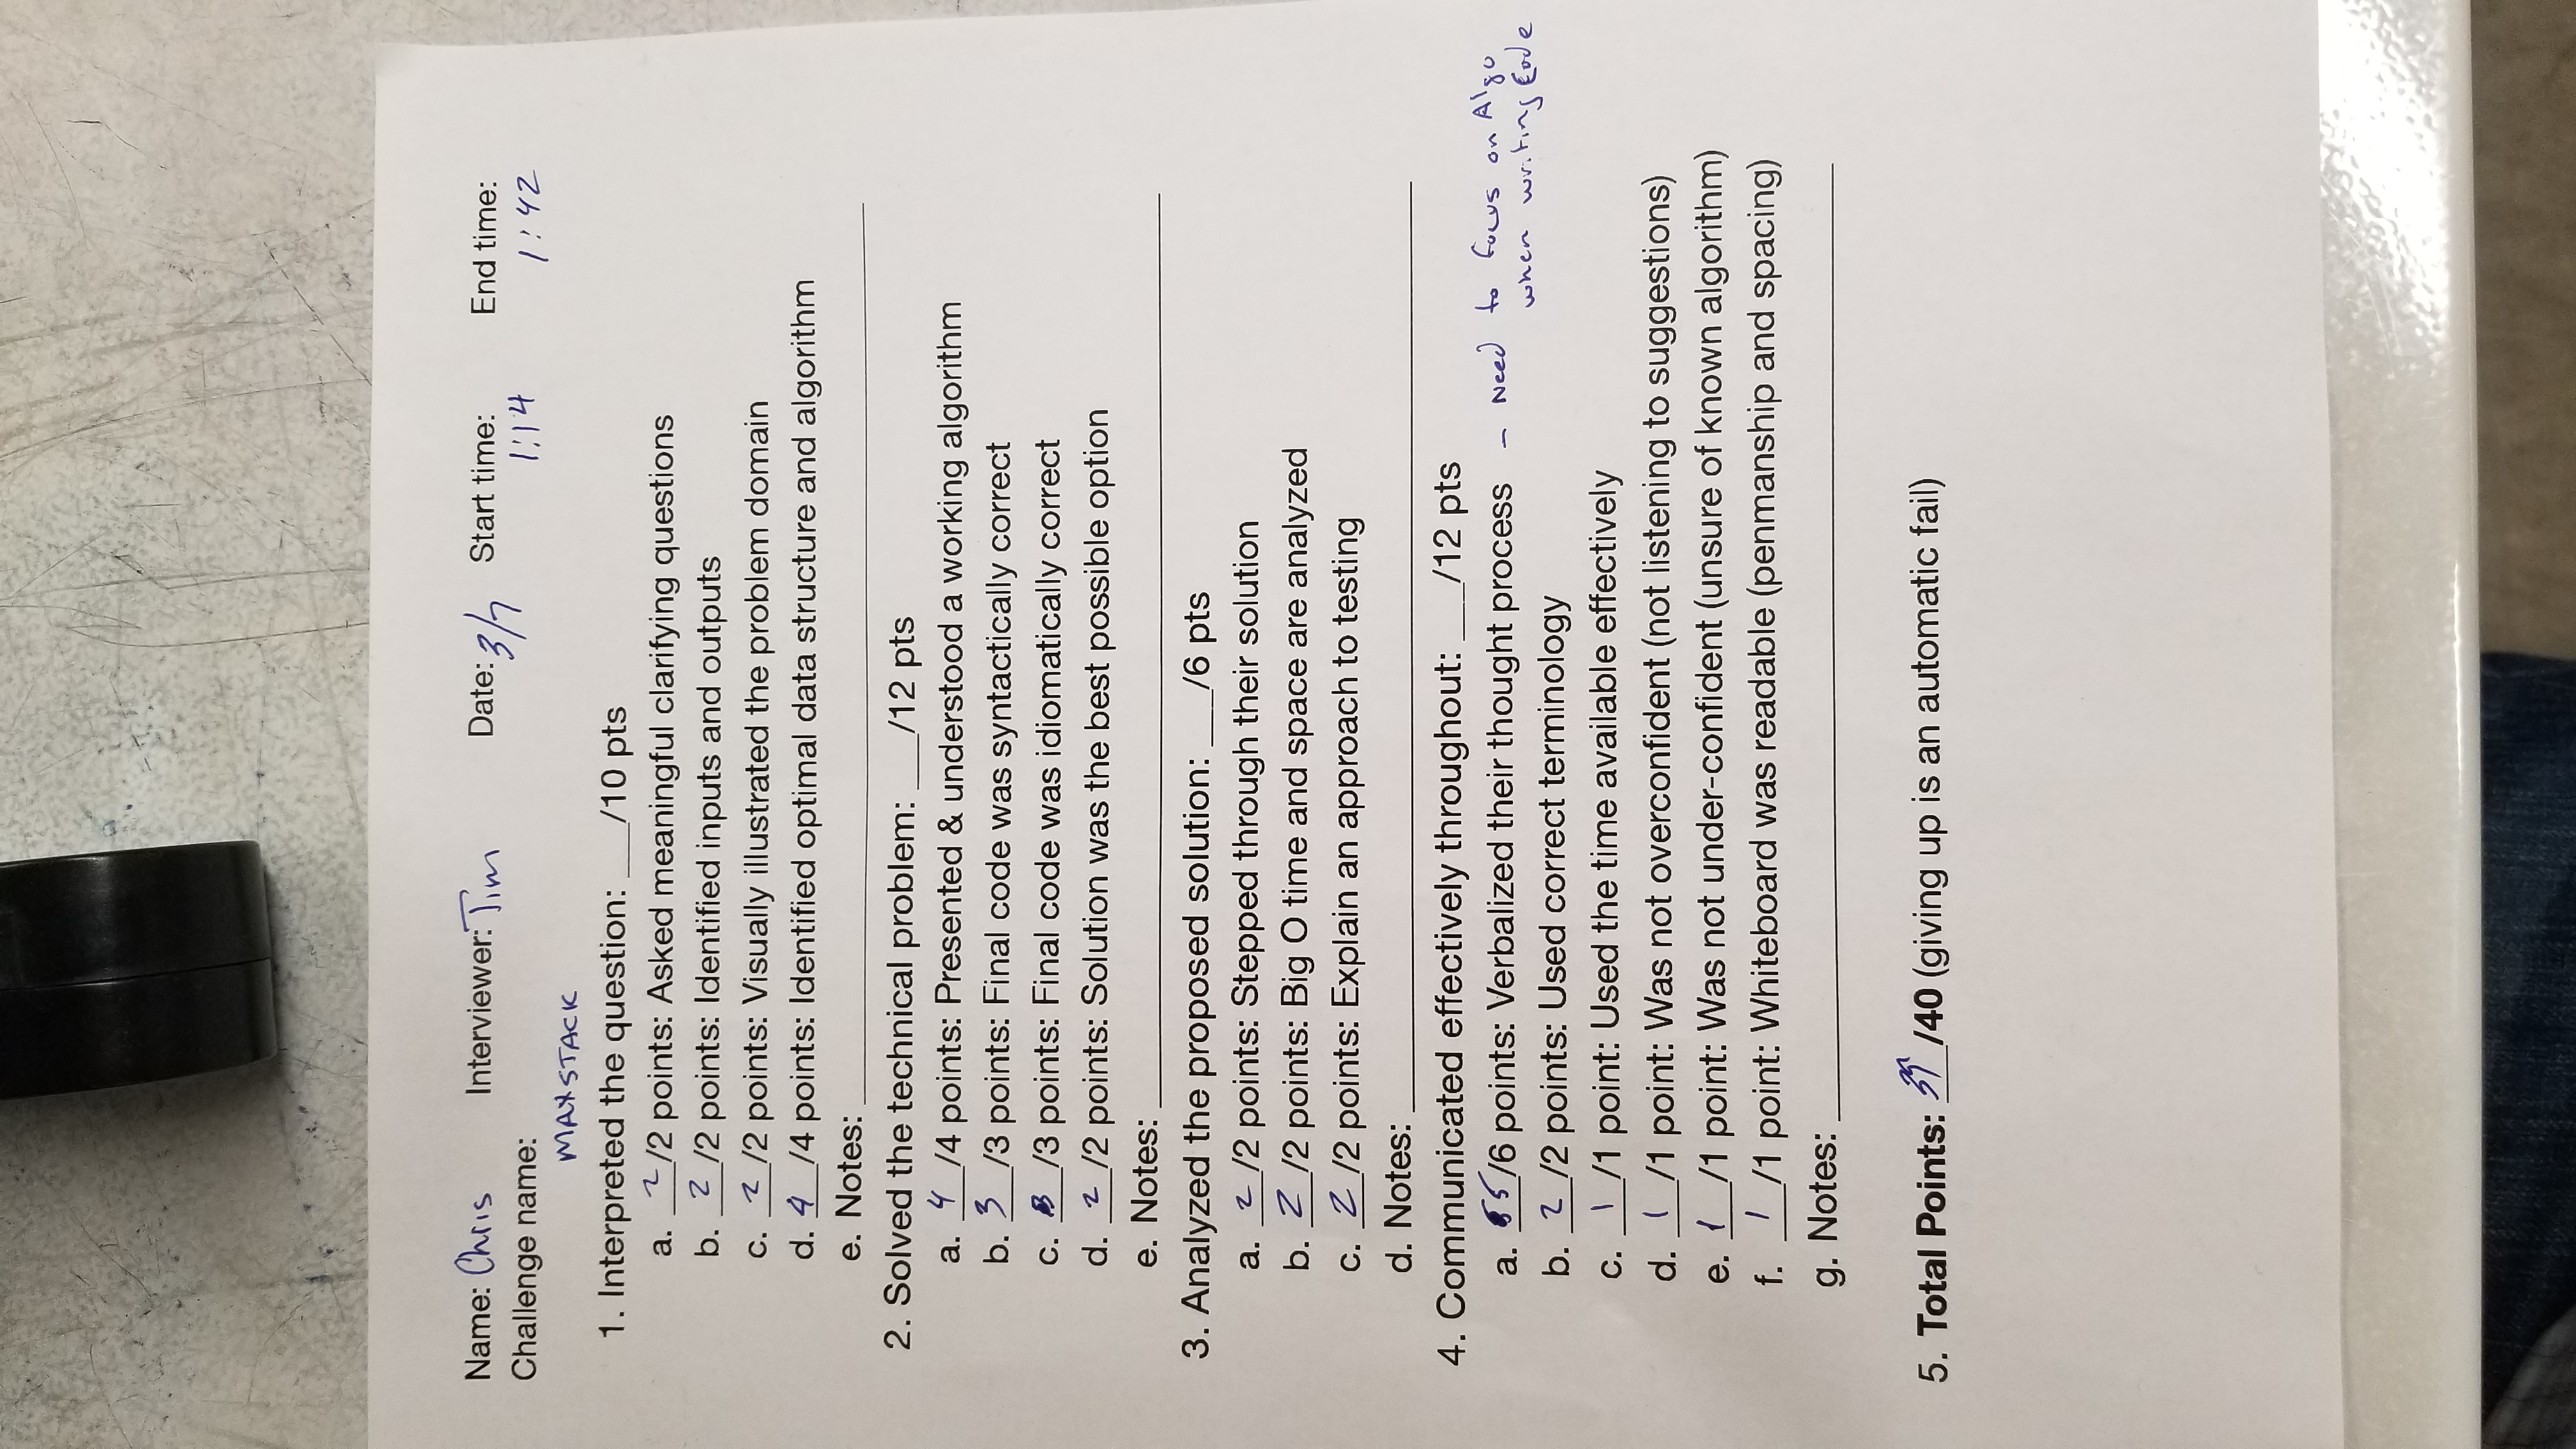 Name: Chris Interviewer: Tim Date: 3/7 Start time: 1:14 End time: 1:42
Challenge name:
MAXSTACK
1. Interpreted the question: ___/10 pts
a. 2/2 points: Asked meaningful clarifying questions
b. 2/2 points: Identified inputs and outputs
c. 2/2 points: Visually illustrated the problem domain
d. 4/4 points: Identified optimal data structure and algorithm
e. Notes: ___
2. Solved the technical problem: ___/12 pts
a. 4/4 points: Presented & understood a working algorithm
b. 3/3 points: Final code was syntactically correct
c. 3/3 points: Final code was idiomatically correct
d. 2/2 points: Solution was the best possible option
e. Notes: ___
3. Analyzed the proposed solution: ___/6 pts
a. 2/2 points: Stepped through their solution
b. 2/2 points: Big O time and space are analyzed
c. 2/2 points: Explain an approach to testing
d. Notes: ___
4. Communicated effectively throughout: ___/12 pts
a. 5/6 points: Verbalized their thought process - Need to focus on Algo
when writing Code
b. 2/2 points: Used correct terminology
c. 1/1 point: Used the time available effectively
d. 1/1 point: Was not overconfident (not listening to suggestions)
e. 1/1 point: Was not under-confident (unsure of known algorithm)
f. 1/1 point: Whiteboard was readable (penmanship and spacing)
g. Notes: ___
5. Total Points: 39/40 (giving up is an automatic fail)